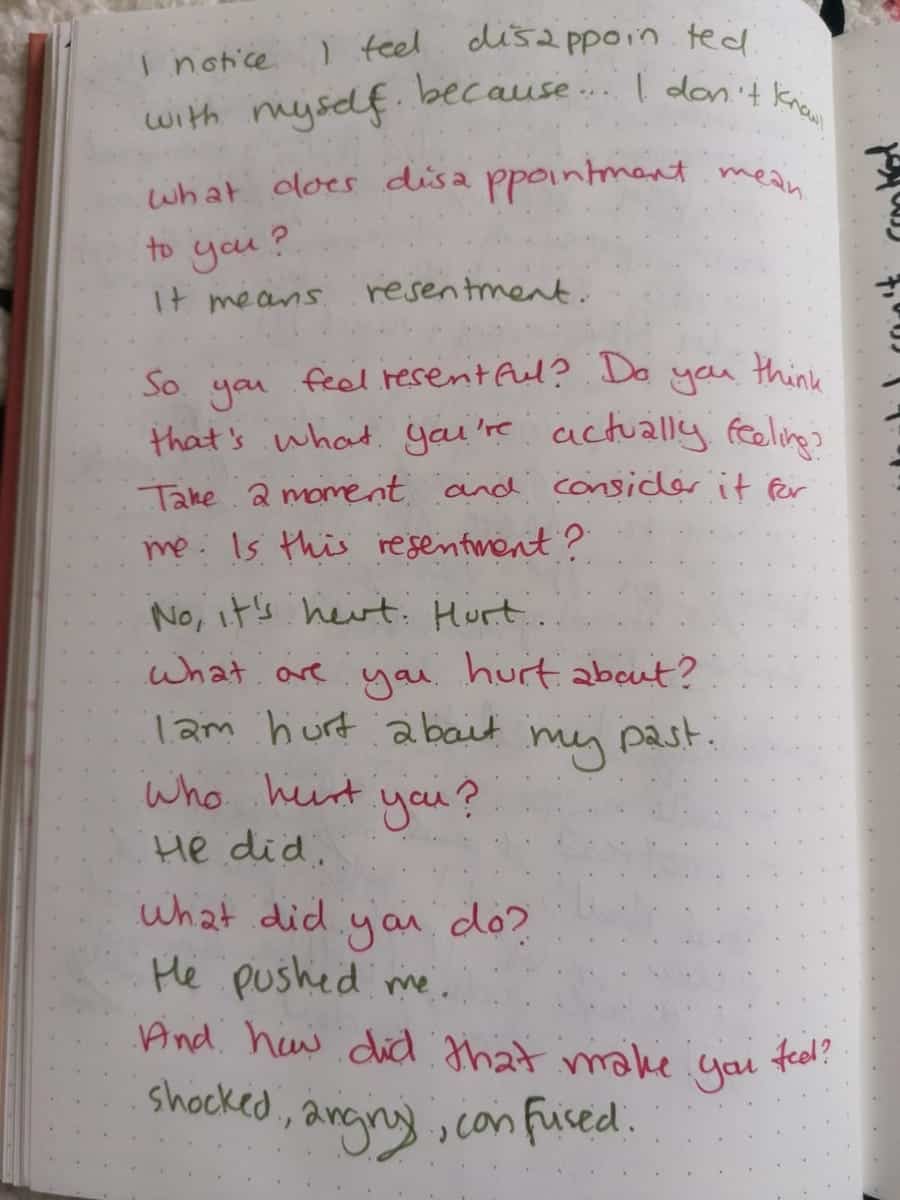 I notice I feel disappointed
with myself. because... I don't know!
What does disappointment mean
to you?
It means resentment.
So you feel resentful? Do you think
that's what you're actually feeling?
Take a moment and consider it for
me. Is this resentment?
No, it's hurt. Hurt.
What are you hurt about?
I am hurt about my past.
Who hurt you?
He did.
What did you do?
He pushed me.
And how did that make you feel?
Shocked, angry, confused.